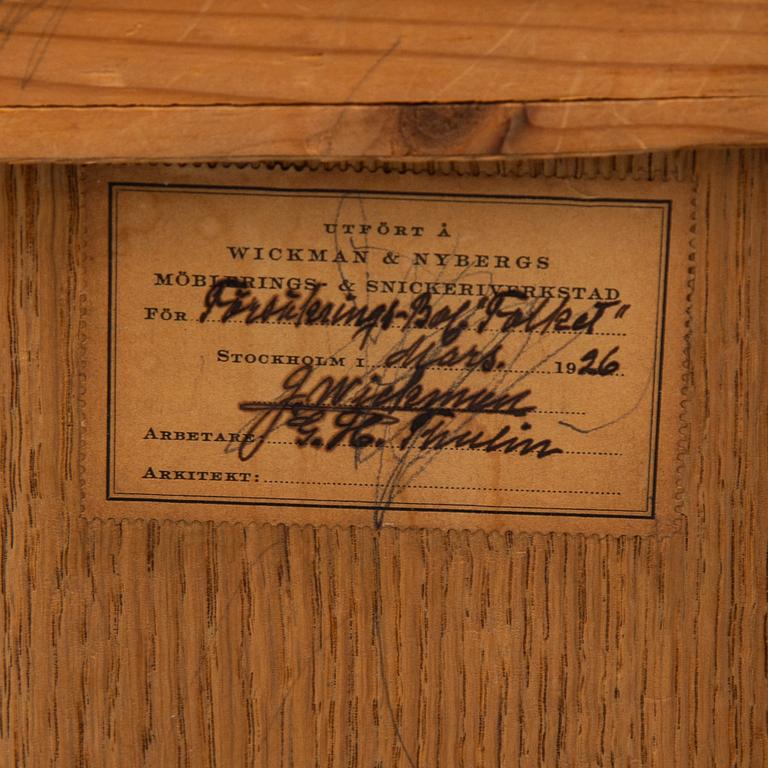 UTFÖRT Å
WICKMAN & NYBERGS
MÖBLERINGS- & SNICKERIVERKSTAD
FÖR Försäkrings-Bol. "Folket"
STOCKHOLM I Mars. 1926
J Wickman
ARBETARE: G. H. Thulin
ARKITEKT: